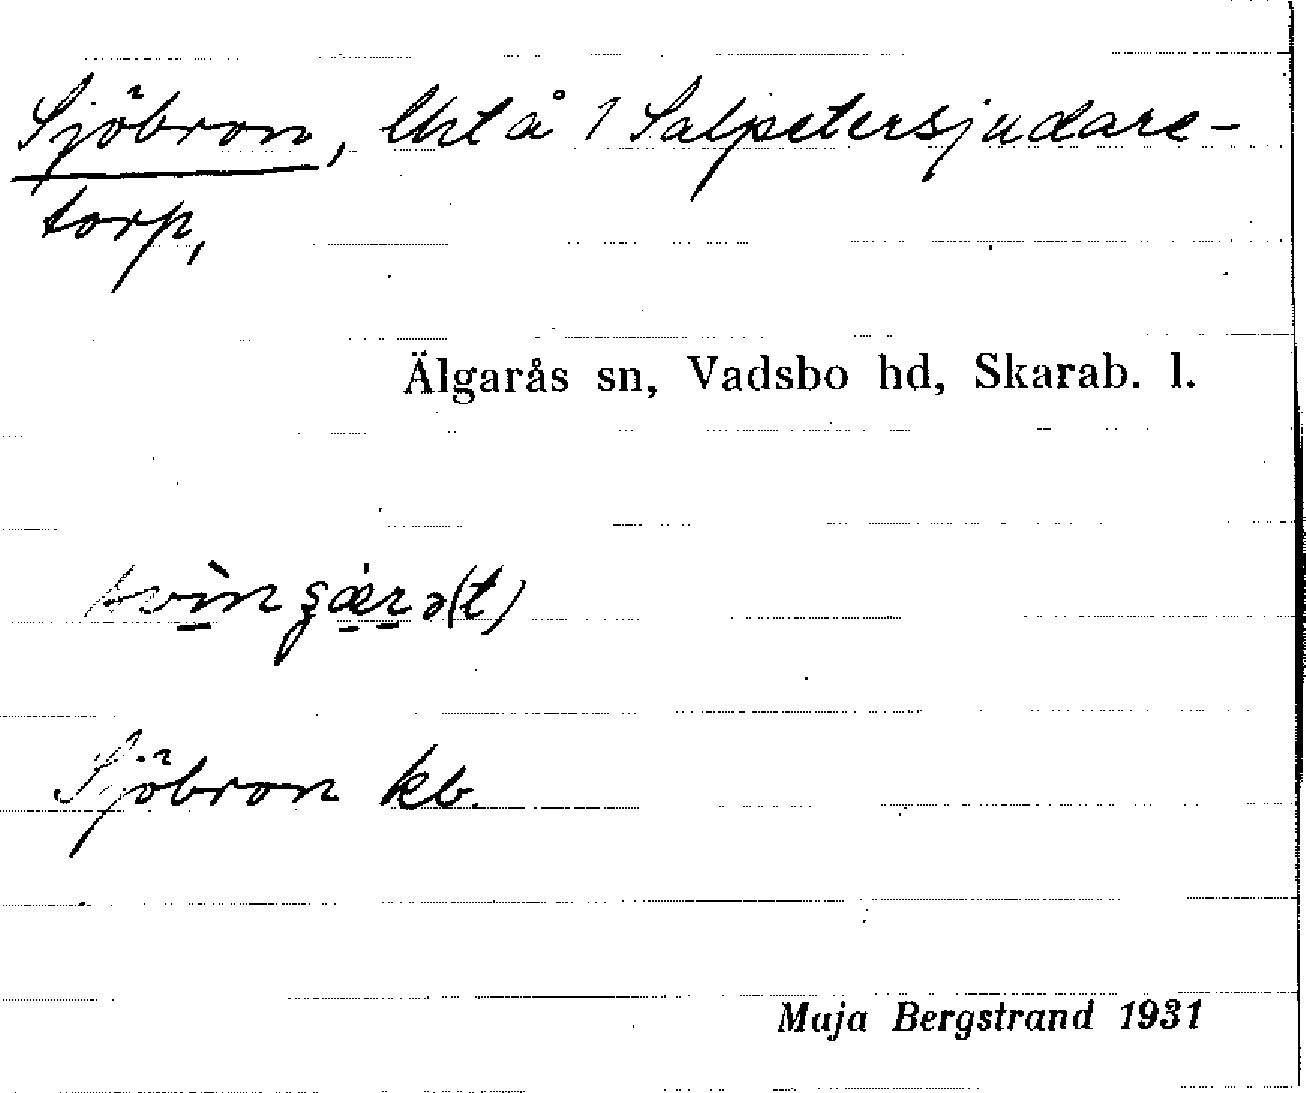 Sjöbron, lht å 1 Salpetersjudare-
torp,
Älgarås sn, Vadsbo hd, Skarab. l.
Sjöbron kb.
Maja Bergstrand 1931